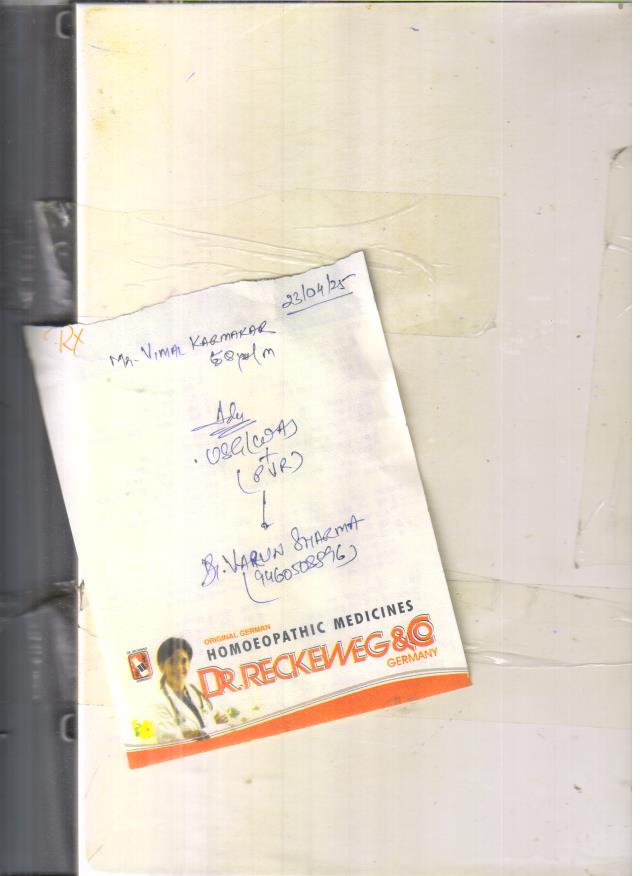 23/04/25
Rx
Mr. VIMAL KARMAKAR
58 yrs/m
Adv
. USG (WA)
+
(PVR)
Dr. VARUN SHARMA
(9460508896)
ORIGINAL GERMAN
HOMOEOPATHIC MEDICINES
DR. RECKEWEG & CO
GERMANY